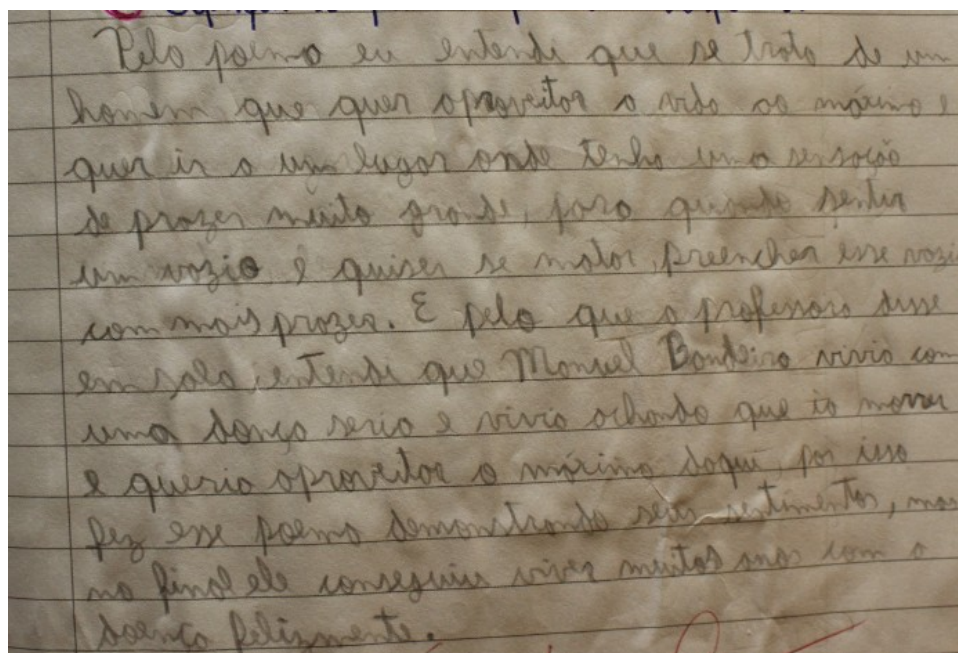 Pelo poema eu entendi que se trata de um
homem que quer aproveitar a vida ao máximo e
quer ir a um lugar onde tenha uma sensação
de prazer muito grande, para quando sentir
um vazio e quiser se matar, preencher esse vazio
com mais prazer. E pelo que a professora disse
em sala, entendi que Manuel Bandeira vivia com
uma donça seria e vivia achando que ia morrer
e queria aproveitar o máximo daqui, por isso
fez esse poema demonstrando seus sentimentos, mas
no final ele conseguiu viver muitos anos com a
doença felizmente.